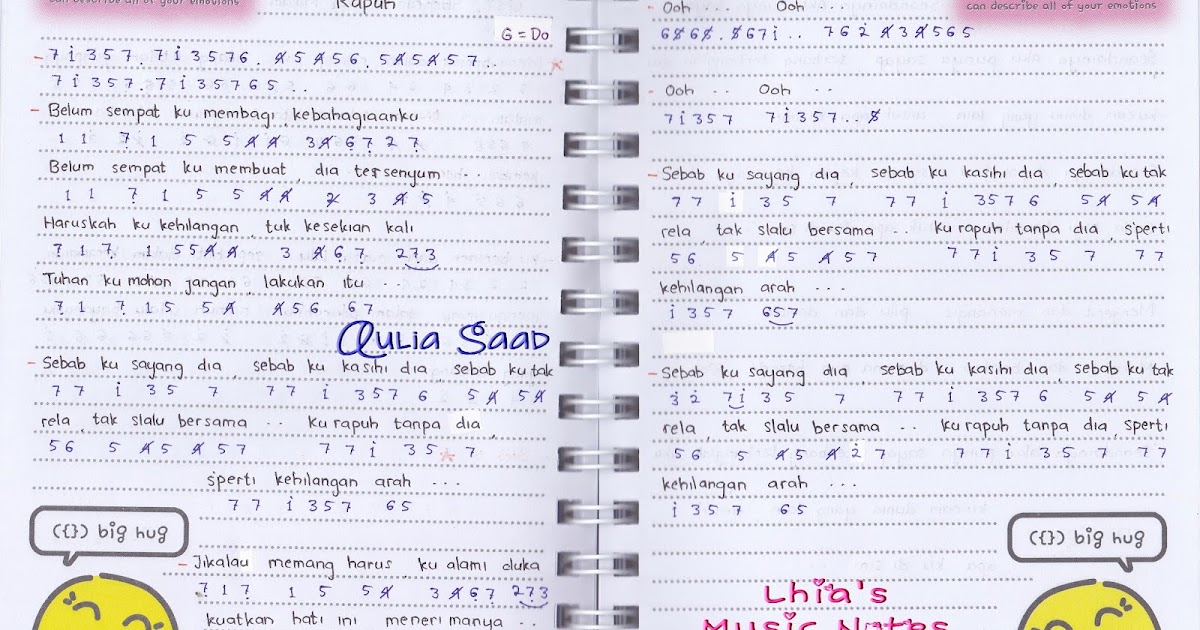 can describe all of your emotions
Rapuh
G = Do
- 7 i 3 5 7 . 7 i 3 5 7 6 . 4̸ 5 4̸ 5 6 . 5 4̸ 5 4̸ 5 7 . .
7 i 3 5 7 . 7 i 3 5 7 6 5 . .
- Belum sempat ku membagi, kebahagiaanku
1 1 7̣ 1 5 5 4̸ 4̸ 3 4̸ 6̣ 7̣ 2 7̣
Belum sempat ku membuat, dia tersenyum . .
1 1 7̣ 1 5 5 4̸ 4̸ 2̸ 3 4̸ 5
Haruskah ku kehilangan, tuk kesekian kali
7̣ 1 7̣ 1 5 5 4̸ 4̸ 3 4̸ 6̣ 7̣ 2 7̣ 3
Tuhan ku mohon jangan, lakukan itu . .
7̣ 1 7̣ 1 5 5 4̸ 4̸ 5 6 6 7
Aulia Saad
- Sebab ku sayang dia, sebab ku kasihi dia, sebab ku tak
7 7 i 3 5 7 7 7 i 3 5 7 6 5 4̸ 5 4̸
rela, tak slalu bersama . . ku rapuh tanpa dia,
5 6 5 4̸ 5 4̸ 5 7 7 7 i 3 5 7
sperti kehilangan arah . . .
7 7 i 3 5 7 6 5
({}) big hug
- Jikalau memang harus ku alami duka
7̣ 1 7̣ 1 5 5 4̸ 3 4̸ 6̣ 7̣ 2 7̣ 3
kuatkan hati ini menerimanya . .
can describe all of your emotions
- Ooh Ooh . .
7 6 2̇ 4̸ 3 4̸ 5 6 5
- Ooh . . Ooh . .
7 i 3 5 7 7 i 3 5 7 . . 5̸
- Sebab ku sayang dia, sebab ku kasihi dia, sebab ku tak
7 7 i 3 5 7 7 7 i 3 5 7 6 5 4̸ 5 4̸
rela, tak slalu bersama . . ku rapuh tanpa dia, sperti
5 6 5 4̸ 5 4̸ 5 7 7 7 i 3 5 7 7 7
kehilangan arah . . .
i 3 5 7 6 5 7
- Sebab ku sayang dia sebab ku kasihi dia, sebab ku tak
3̇ 2̇ 7 i 3 5 7 7 7 i 3 5 7 6 5 4̸ 5 4̸
rela, tak slalu bersama . . ku rapuh tanpa dia, sperti
5 6 5 4̸ 5 4̸ 2̇ 7 7 7 i 3 5 7 7 7
kehilangan arah . . .
i 3 5 7 6 5
({}) big hug
Lhia's
Music Notes